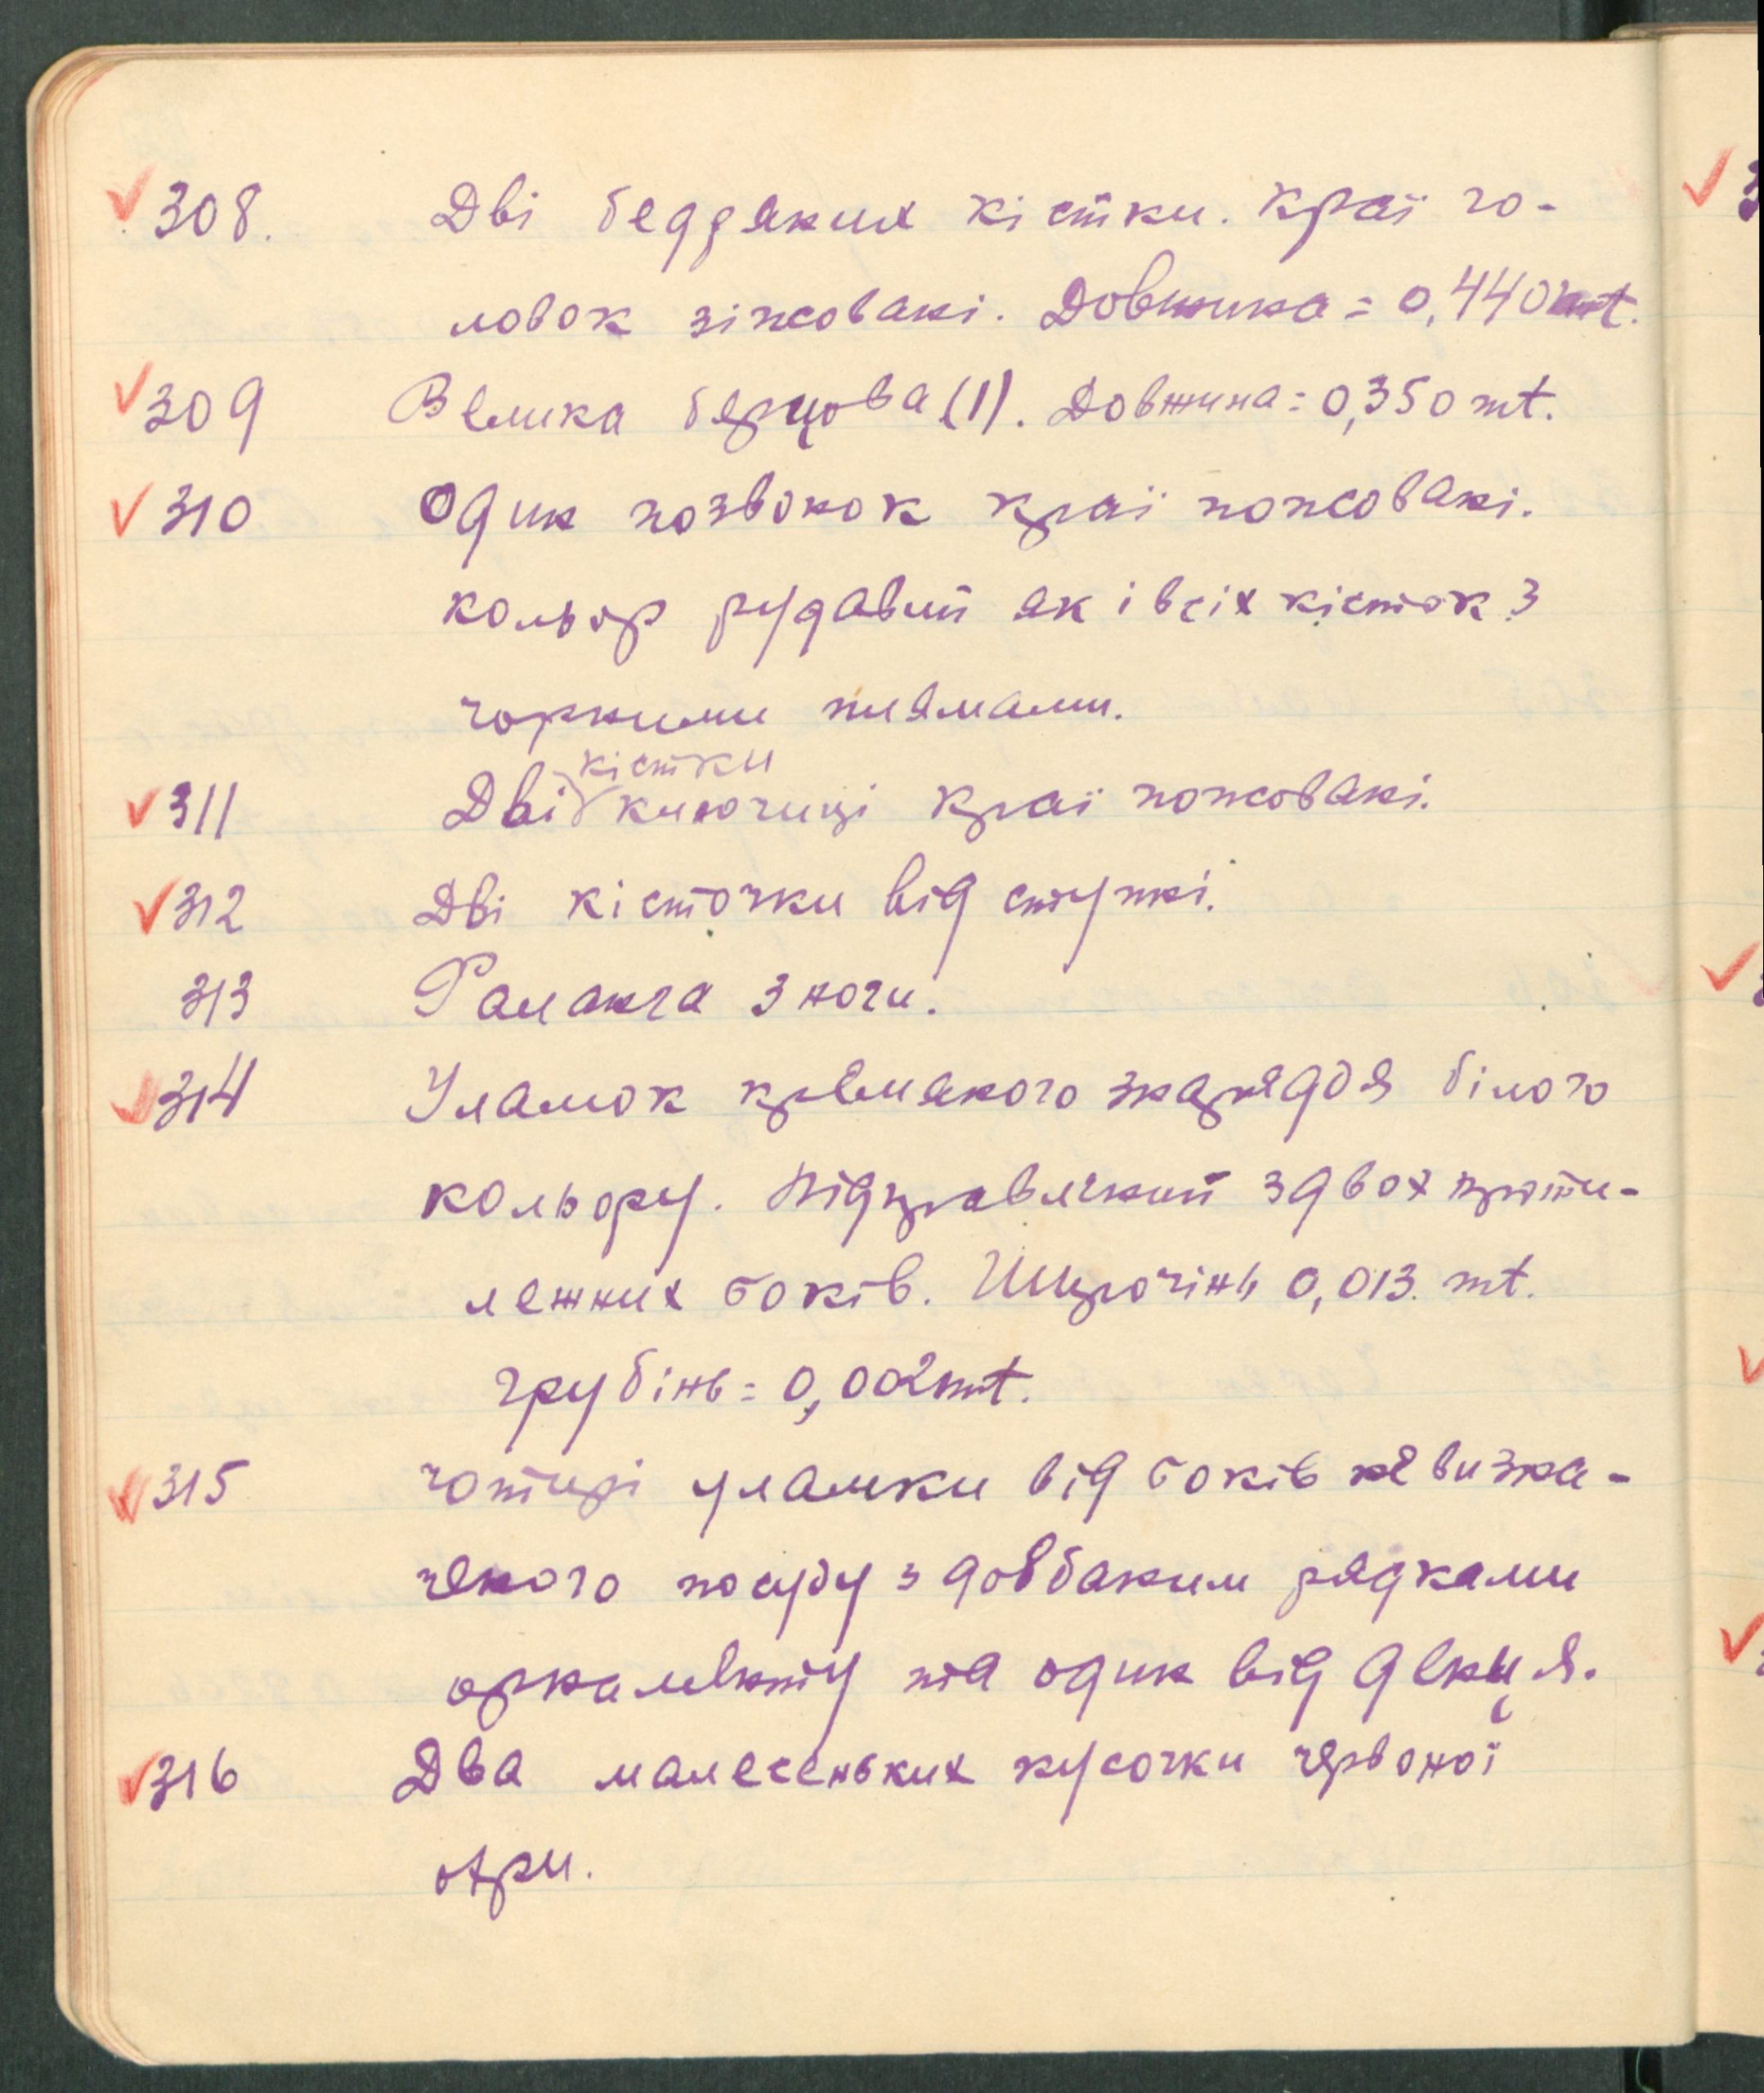 308. Дві беддяних кістки. Краї го-
ловок зіпсовані. Довжина = 0,440 mt.
309 Велика берцова (1). Довжина = 0,350 mt.
310 Один позвонок краї попсовані.
кольор рудавий як і всіх кісток з
чорними плямами.
кістки
311 Дві ключиці краї попсовані.
312 Дві кісточки від ступні.
313 Фаланга з ноги.
314 Уламок кремяного знаряддя білого
кольору. Підправлений з двох проти-
лежних боків. Широчінь 0,013. mt.
грубінь = 0,002 mt.
315 чотирі уламки від боків невизна-
чного посуду з довбаним рядками
орнаменту та один від денця.
316 Два малесеньких кусочки червоної
охри.